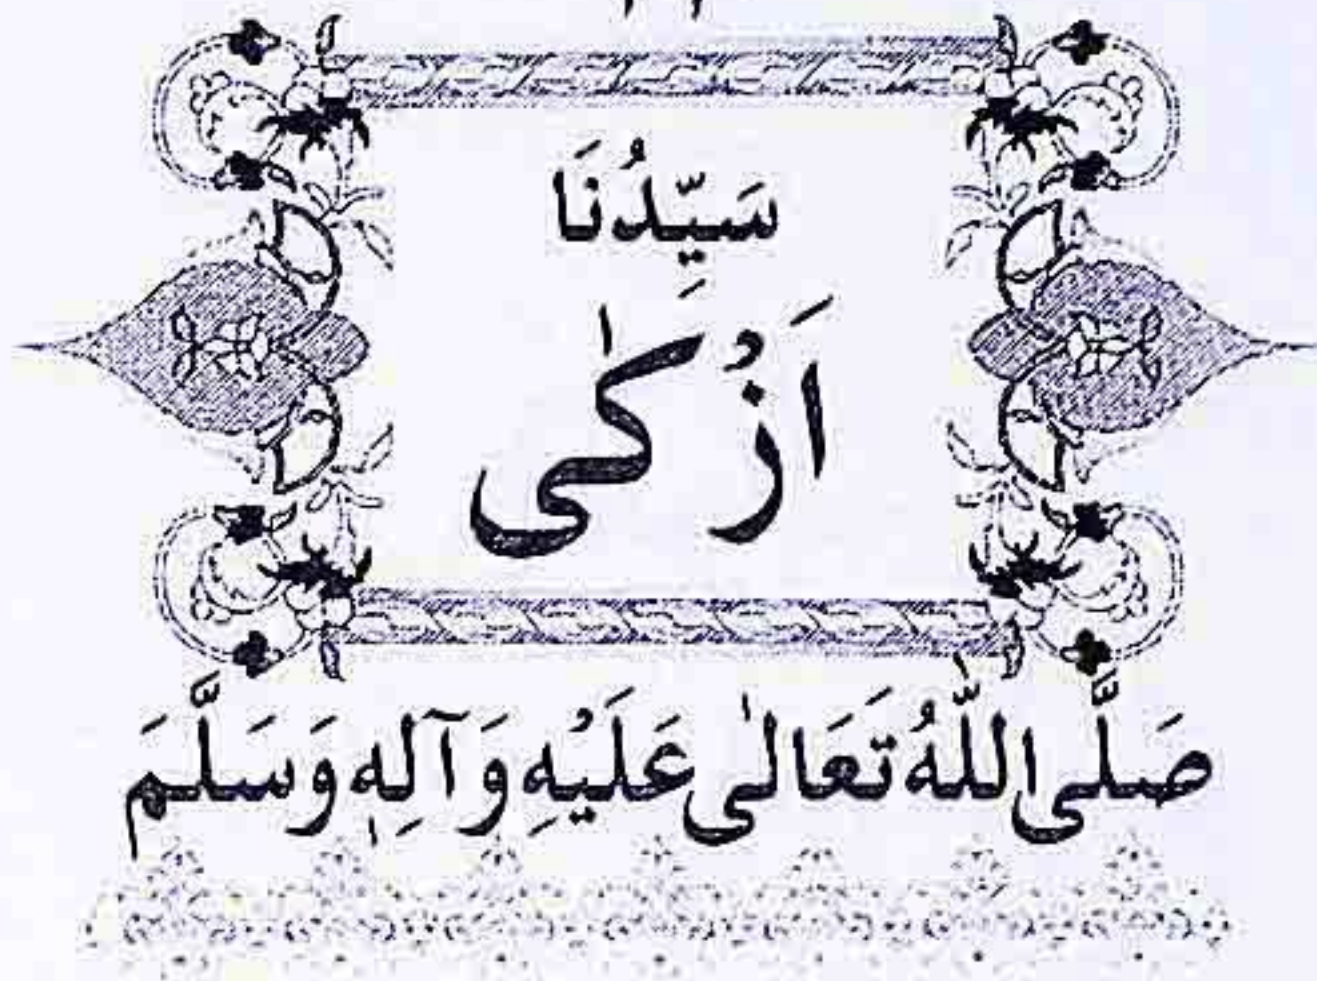 سَيِّدُنَا
اَزْكٰى
صَلَّى اللّٰهُ تَعَالٰى عَلَيْهِ وَآلِهٖ وَسَلَّمَ